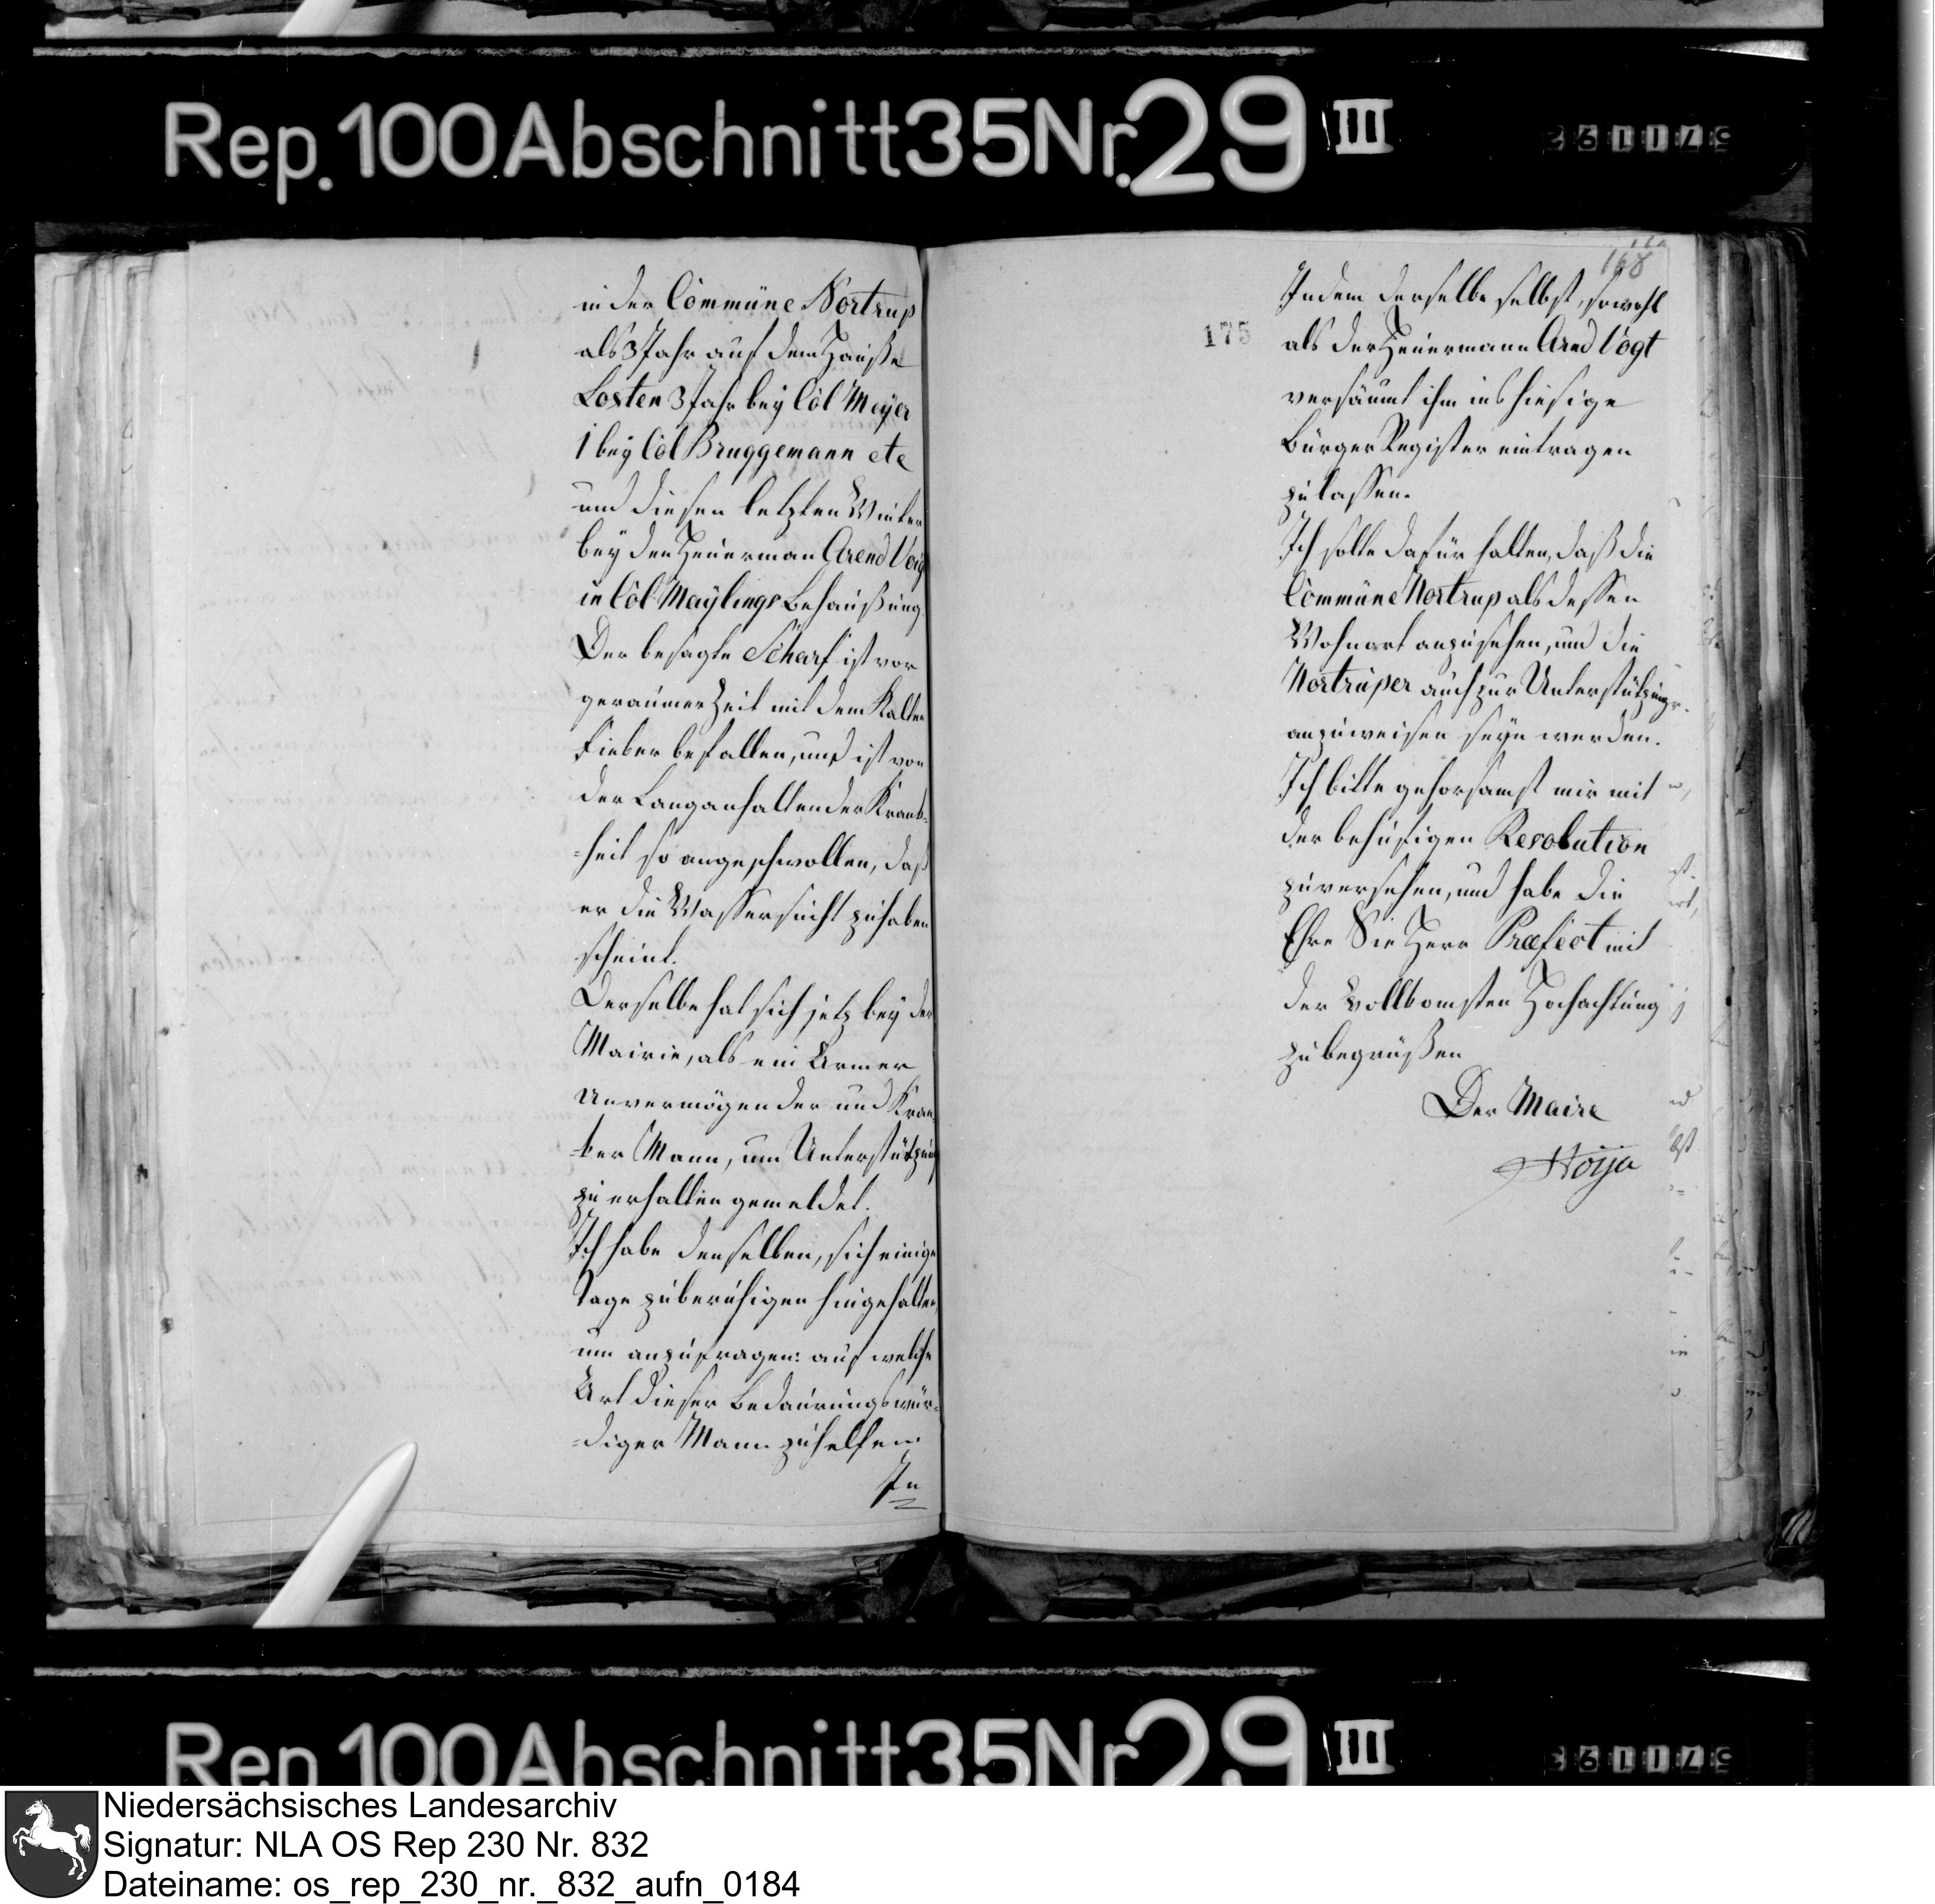 Rep. 100 Abschnitt 35 Nr. 29 III
in der Commüne Nortrup
als 3 Jahr auf dem Hauße
Losten 3 Jahr bey Col Meyer
1 bey Col Bruggemann etc
und diesen letzten Winter
bey den Heuerman Arend Voig
in Col Maylings Behaußung
Der besagte Scharf ist vor
geraumer Zeit mit dem Kalten
Fieber befallen, und ist von
der Langanhaltender Krank-
=heit so angeschwollen, daß
er die Wassersucht zuhaben
scheint.
Derselbe hat sich jetz bey der
Mairie, als ein Armer
Unvermögender und Kran-
=ker Mann, um Unterstützung
zu erhalten gemeldet.
Ich habe denselben, sich einige
Tage zuberuhigen hingehalten,
um anzufragen: auf welche
Art dieser Bedaurungswür-
=diger Mann zuhelfen.
In
168
175
Indem derselbe selbst, sowohl
als der Heuermann Arnd Vogt
versäumt ihm ins hiesige
Bürger Register eintragen
zulassen.
Ich solte dafür halten, daß die
Commüne Nortrup als dessen
Wohnort anzusehen, und die
Nortruper auch zur Unterstützung
anzuweisen seyn werden.
Ich bitte gehorsamst mir mit
der behufigen Resolution
zuversehen, und habe die
Ehre Sie Herr Præfect mit
der Vollkomsten Hochachtung
zubegrüßen
Der Maire
Hoÿa
Rep. 100 Abschnitt 35 Nr. 29 III
Niedersächsisches Landesarchiv
Signatur: NLA OS Rep 230 Nr. 832
Dateiname: os_rep_230_nr._832_aufn_0184